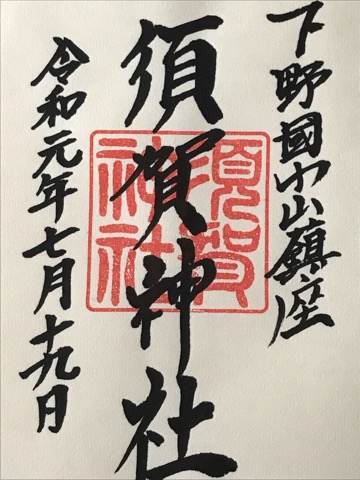 下野國小山鎮座
須賀神社
須賀神社
令和元年七月十九日